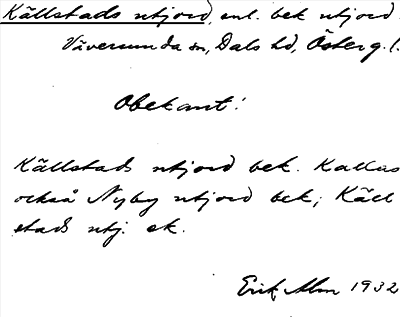 Källstads utjord, enl. bek utjord.
Väversunda sn, Dals hd, Österg. l.
Obekant!
Källstads utjord bek. Kallas
också Nyby utjord bek; Käll
stads utj. ek.
Erik Alm 1932